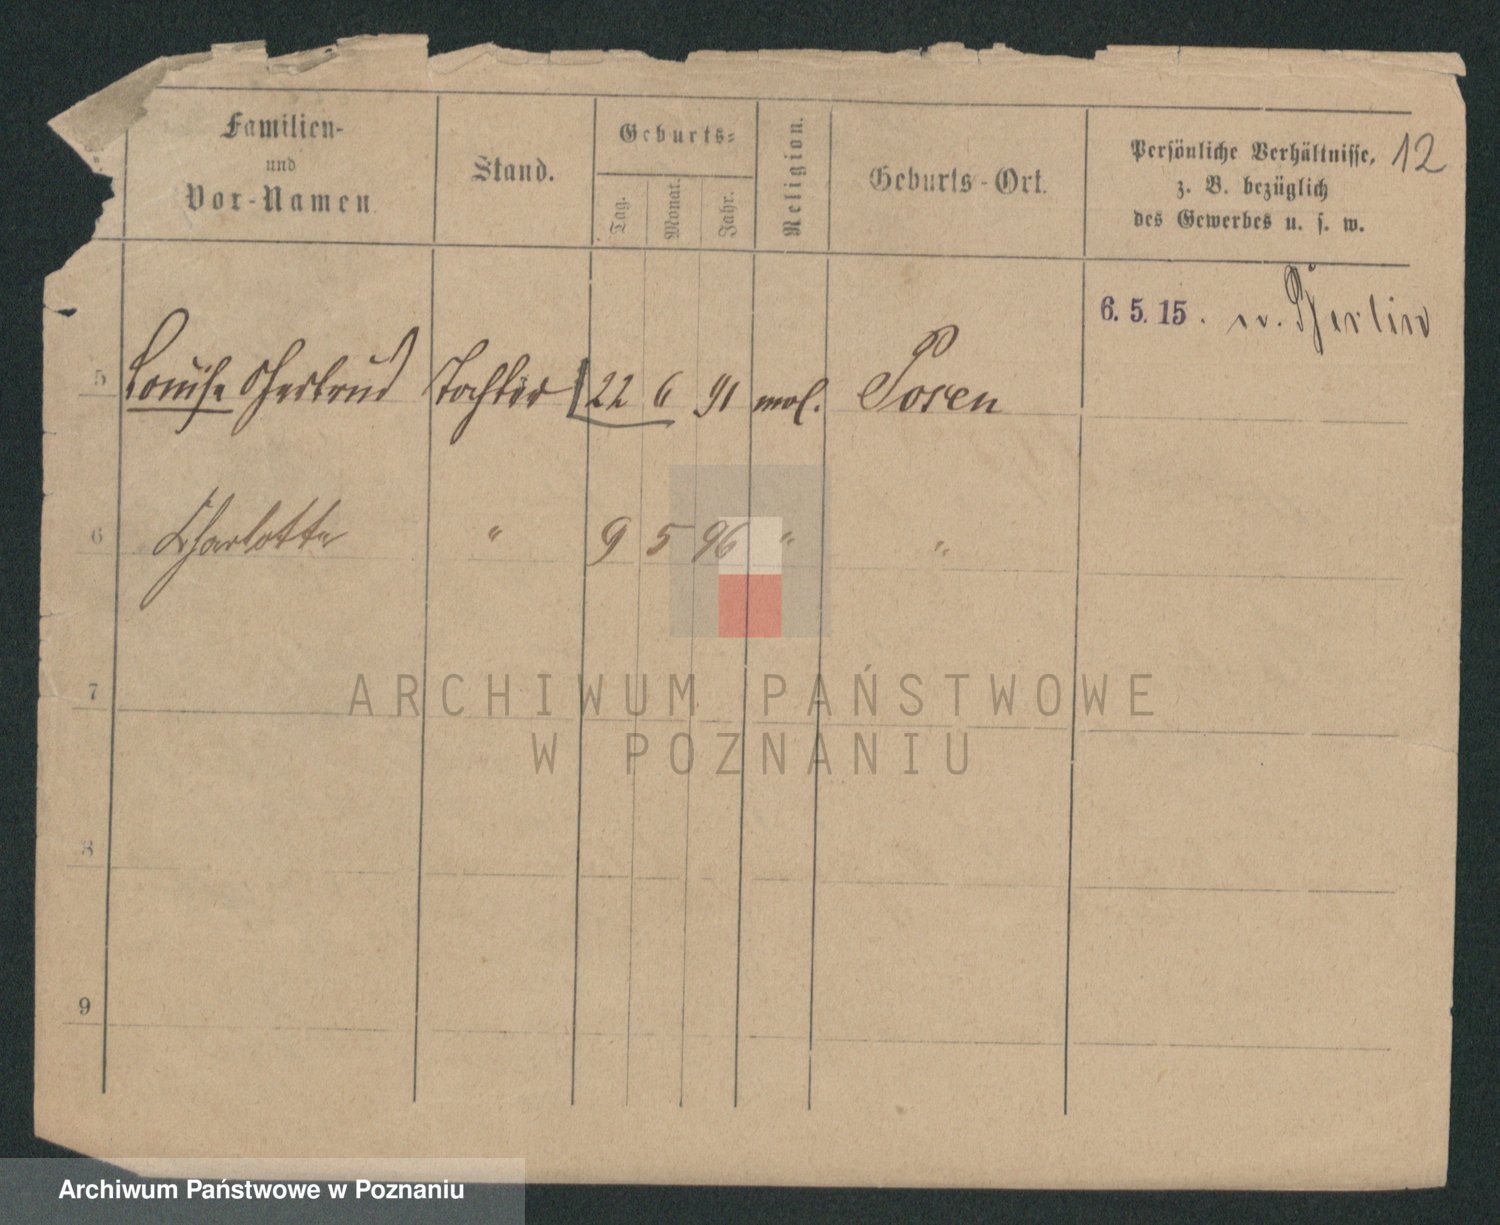 Familien-
und
Vor-Namen.
Stand.
Geburts-
Tag.
Monat.
Jahr.
Religion.
Geburts-Ort.
Persönliche Verhältnisse,
z. B. bezüglich
des Gewerbes u. s. w.
12
6. 5. 15. n. Berlin
5 Louise Gertrud Tochter 22 6 91 mos. Posen
6 Charlotte " 9 5 96 " "
7
ARCHIWUM PAŃSTWOWE
W POZNANIU
8
9
Archiwum Państwowe w Poznaniu